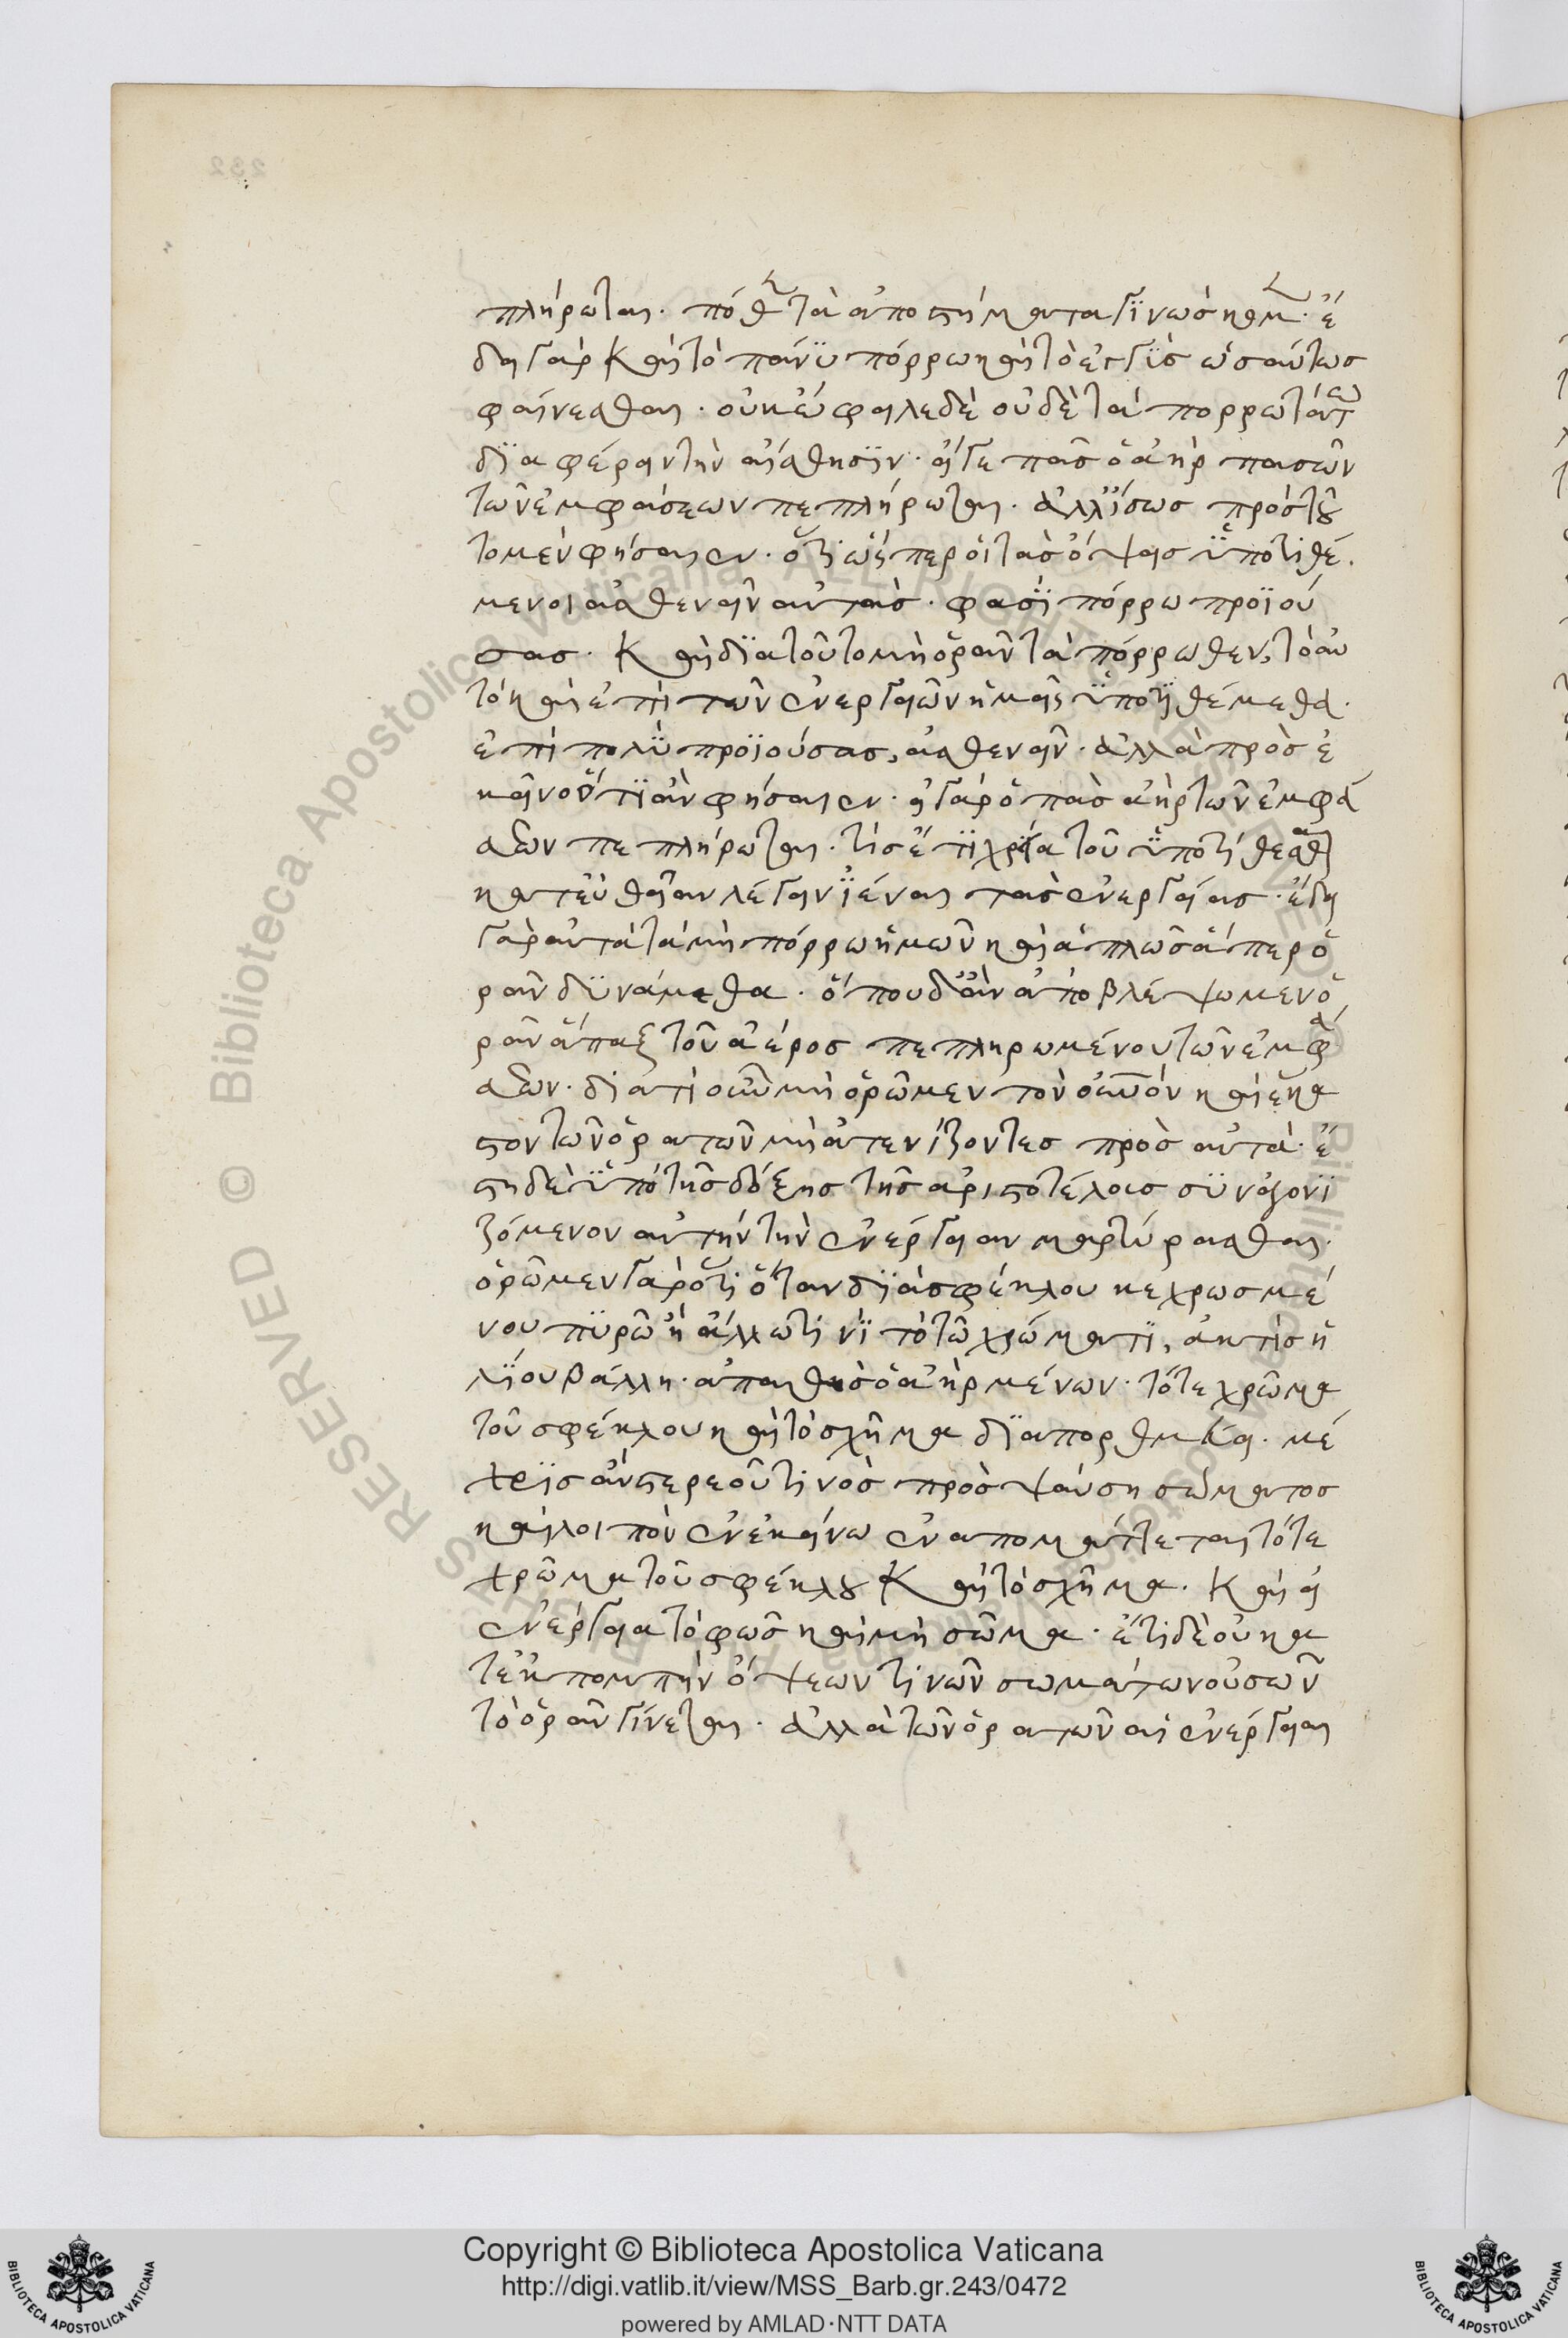 πλήρωται. πόθεν τὰ ἀποστήματα γινώσκομεν. ἔ
δει γὰρ καὶ τὸ πάνυ πόρρω καὶ τὸ ἐγγὺς ὡσαύτως
φαίνεσθαι. οὐκ ὤφειλε δὲ οὐδὲ τὰ πορρωτάτω
διαφέρειν τὴν αἴσθησιν. εἴγε πᾶς ὁ ἀὴρ πασῶν
τῶν ἐμφάσεων πεπλήρωται. ἀλλ' ἴσως πρὸς τοῦ
το μὲν φήσειεν. ὅτι ὥσπερ οἱ τὰς ὄψεις ὑποτιθέ
μενοι ἀσθενεῖν αὐτάς. φασὶ πόρρω προϊού
σας. καὶ διὰ τοῦτο μὴ ὁρᾶν τὰ πόρρωθεν, τὸ αὐ
τὸ καὶ ἐπὶ τῶν ἐνεργειῶν ἡμεῖς ὑποτιθέμεθα.
ἐπὶ πολὺ προϊούσας, ἀσθενεῖν. ἀλλὰ πρὸς ἐ
κεῖνο τί ἂν φήσειεν. εἰ γὰρ ὁ πᾶς ἀὴρ τῶν ἐμφά
σεων πεπλήρωται. τίς ἔτι χρεία τοῦ ὑποτίθεσθαι
κατ' εὐθεῖαν λέγειν ἰέναι τὰς ἐνεργείας. ἔδει
γὰρ αὐτὰ τὰ μὴ πόρρω ἡμῶν καὶ ἁπλῶς ἅπερ ὁ
ρᾶν δυνάμεθα. ὅπου δ' ἂν ἀποβλέψωμεν ὁ
ρᾶν ἅπαξ τοῦ ἀέρος πεπληρωμένου τῶν ἐμφά
σεων. διατί οὖν μὴ ὁρῶμεν τὸν οὐνὸν καὶ ἕκα
στον τῶν ὁρατῶν μὴ ἀτενίζοντες πρὸς αὐτά. ἔ
στι δὲ ὑπὸ τῆς δόξης τῆς ἀριστοτέλους συναγωνι
ζόμενον αὐτὴν τὴν ἐνέργειαν μαρτύρασθαι.
ὁρῶμεν γὰρ ὅτι ὅταν διὰ σφέκλου κεχρωσμέ
νου πυρῶ ἢ ἄλλω τινὶ τὸ τῶ χρώματι, ἀκτὶς ἡ
λίου βάλλη. ἀπαθὴς ὁ ἀὴρ μένων. τό τε χρῶμα
τοῦ σφέκλου καὶ τὸ σχῆμα διαπορθμεύει. μέ
χρις ἂν στερεοῦ τινὸς προσψαύση σώματος
καὶ λοιπὸν ἐν ἐκείνω ἐναπομάττεται τό τε
χρῶμα τοῦ σφέκλου καὶ τὸ σχῆμα. καὶ εἰ
ἐνέργεια τὸ φῶς καὶ μὴ σῶμα. ἔτι δὲ οὐ κα
τ' ἐκπομπὴν ὄψεων τινῶν σωμάτων οὐσῶν
τὸ ὁρᾶν γίνεται. ἀλλὰ τῶν ὁρατῶν αἱ ἐνέργειαι
232
Biblioteca Apostolica Vaticana ALL RIGHTS RESERVED ©
Copyright © Biblioteca Apostolica Vaticana
http://digi.vatlib.it/view/MSS_Barb.gr.243/0472
powered by AMLAD·NTT DATA
BIBLIOTECA APOSTOLICA VATICANA
BIBLIOTECA APOSTOLICA VATICANA